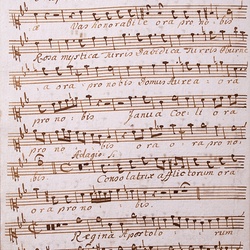 a Vas honorabile ora pro no bis
Rosa mystica Turris Davidica Turris Eburne
a ora pro nobis Domus Aurea ora
pro no bis Janua Coe li ora
pro no bis ora o ra pro no
Adagio
bis Consolatrix afflictorum ora
ora pro no bis.
Regina Apostolo rum